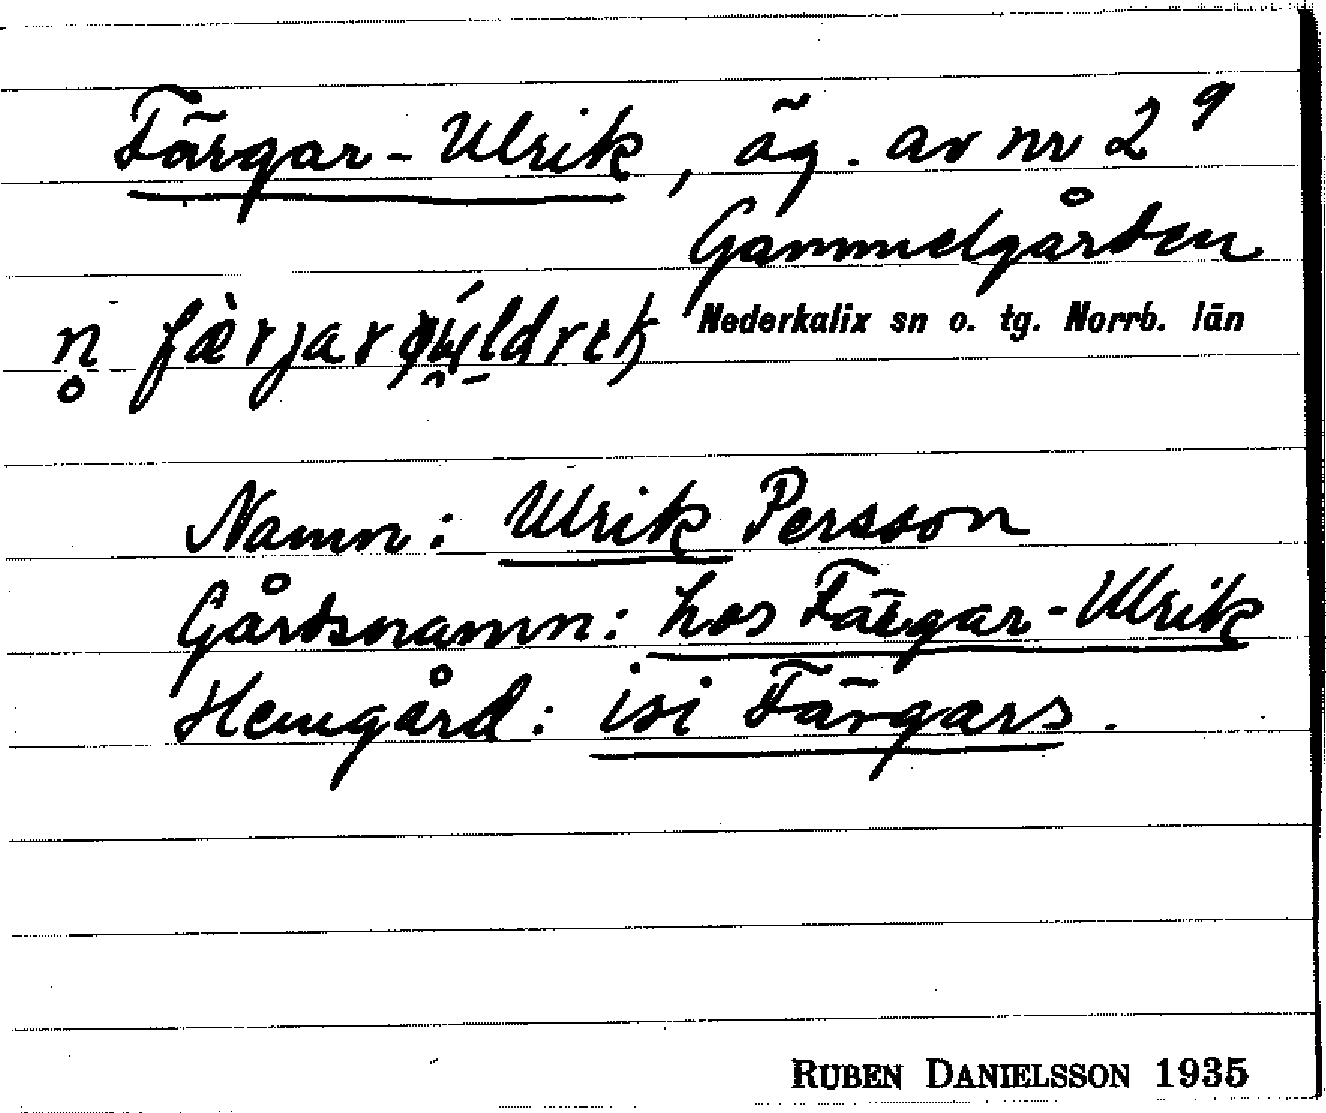 Färgar-Ulrik, äg. av nr 2⁹
Gammelgården
Nederkalix sn o. tg. Norrb. län
Namn: Ulrik Persson
Gårdsnamn: hos Färgar-Ulrik
Hemgård: isi Färgars.
RUBEN DANIELSSON 1935